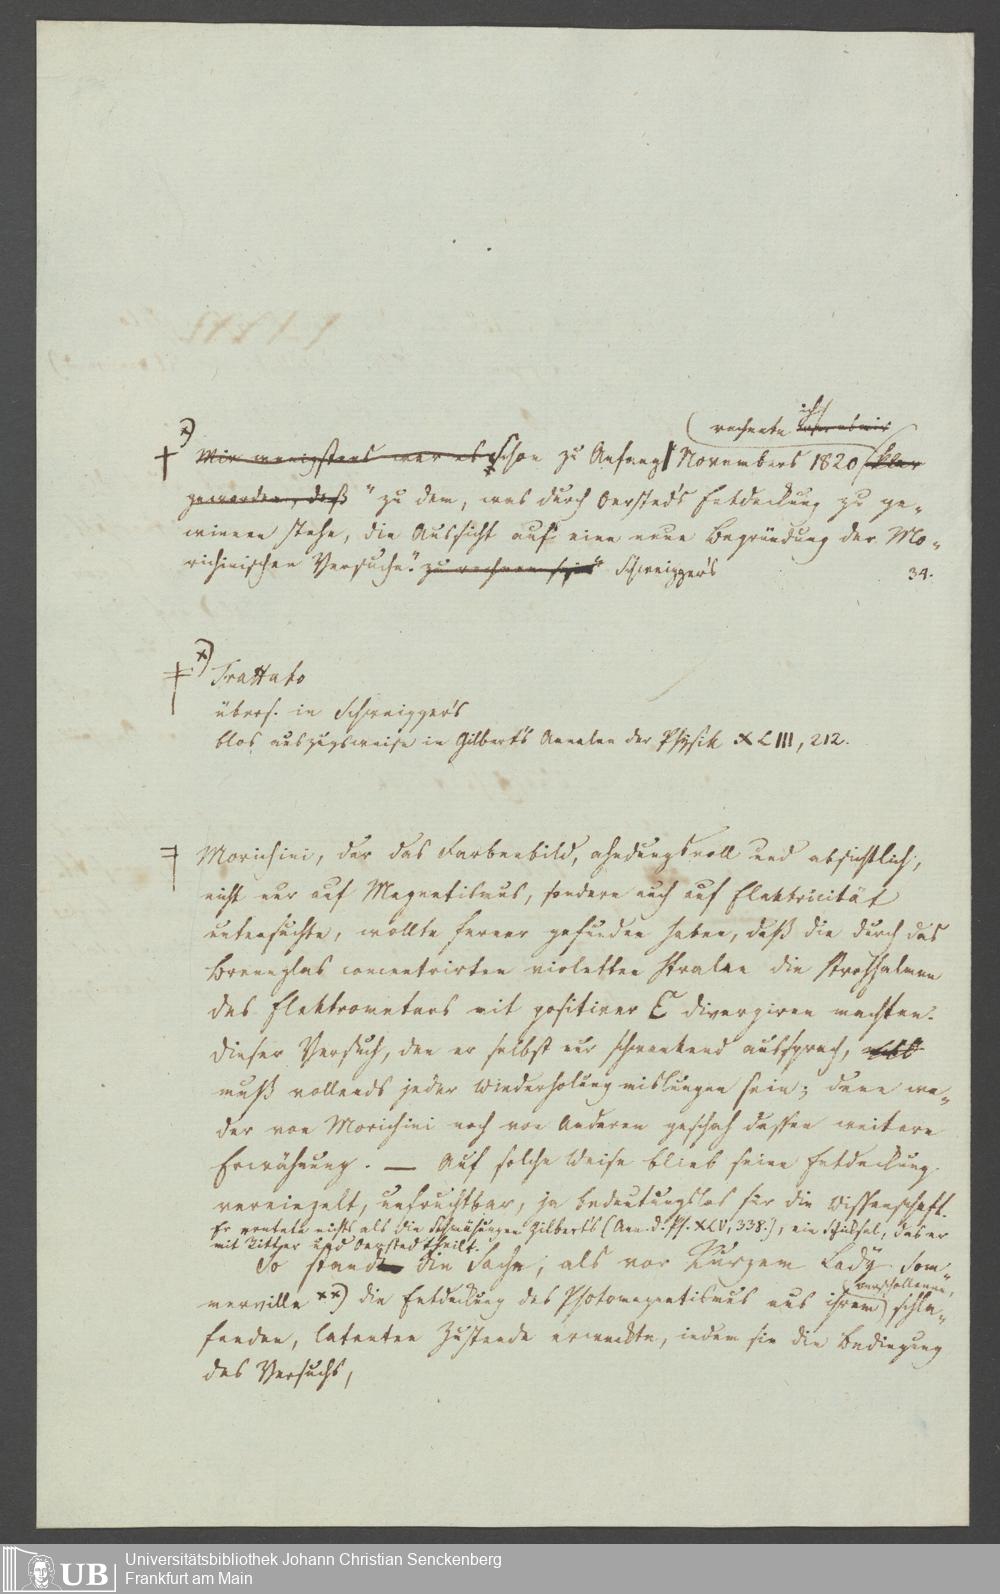 rechnete ich ~~war es mir~~
†*) ~~Mir wenigstens war es~~ schon zu Anfang Novembers 1820 ~~klar~~
~~geworden, daß~~ "zu dem, was durch Oersted's Entdeckung zu ge-
winnen stehe, die Aussicht auf eine neue Begründung der Mo-
richinischen Versuche." ~~zu rechnen sei"~~ Schweigger's
34.
*) Trattato
übers. in Schweigger's
blos auszugsweise in Gilbert's Annalen der Physik XLIII, 212.
Morichini, der das Farbenbild, ahndungsvoll und absichtlich,
nicht nur auf Magnetismus, sondern auch auf Elektricität
untersuchte, wollte ferner gefunden haben, daß die durch das
Brennglas concentrirten violetten Stralen die Strohhalmen
des Elektrometers mit positiver E divergiren machten.
Dieser Versuch, den er selbst nur schwankend aussprach,
muß vollends jeder Wiederholung mislungen sein; denn we-
der von Morichini noch von Anderen geschah dessen weitere
Erwähnung. — Auf solche Weise blieb seine Entdeckung
vereinzelt, unfruchtbar, ja bedeutungslos für die Wissenschaft.
Er erntete nichts als die Schmähungen Gilbert's (Ann. d. Ph. XLV, 338.), ein Schiksal, das er
mit Ritter und Oersted theilt.
So stand die Sache, als vor Kurzem Lady Som-
merville **) die Entdeckung des Photomagnetismus aus ihrem verschollenen, schla-
fenden, latenten Zustande erweckte, indem sie die Bedingung
des Versuchs,
Universitätsbibliothek Johann Christian Senckenberg
Frankfurt am Main
UB